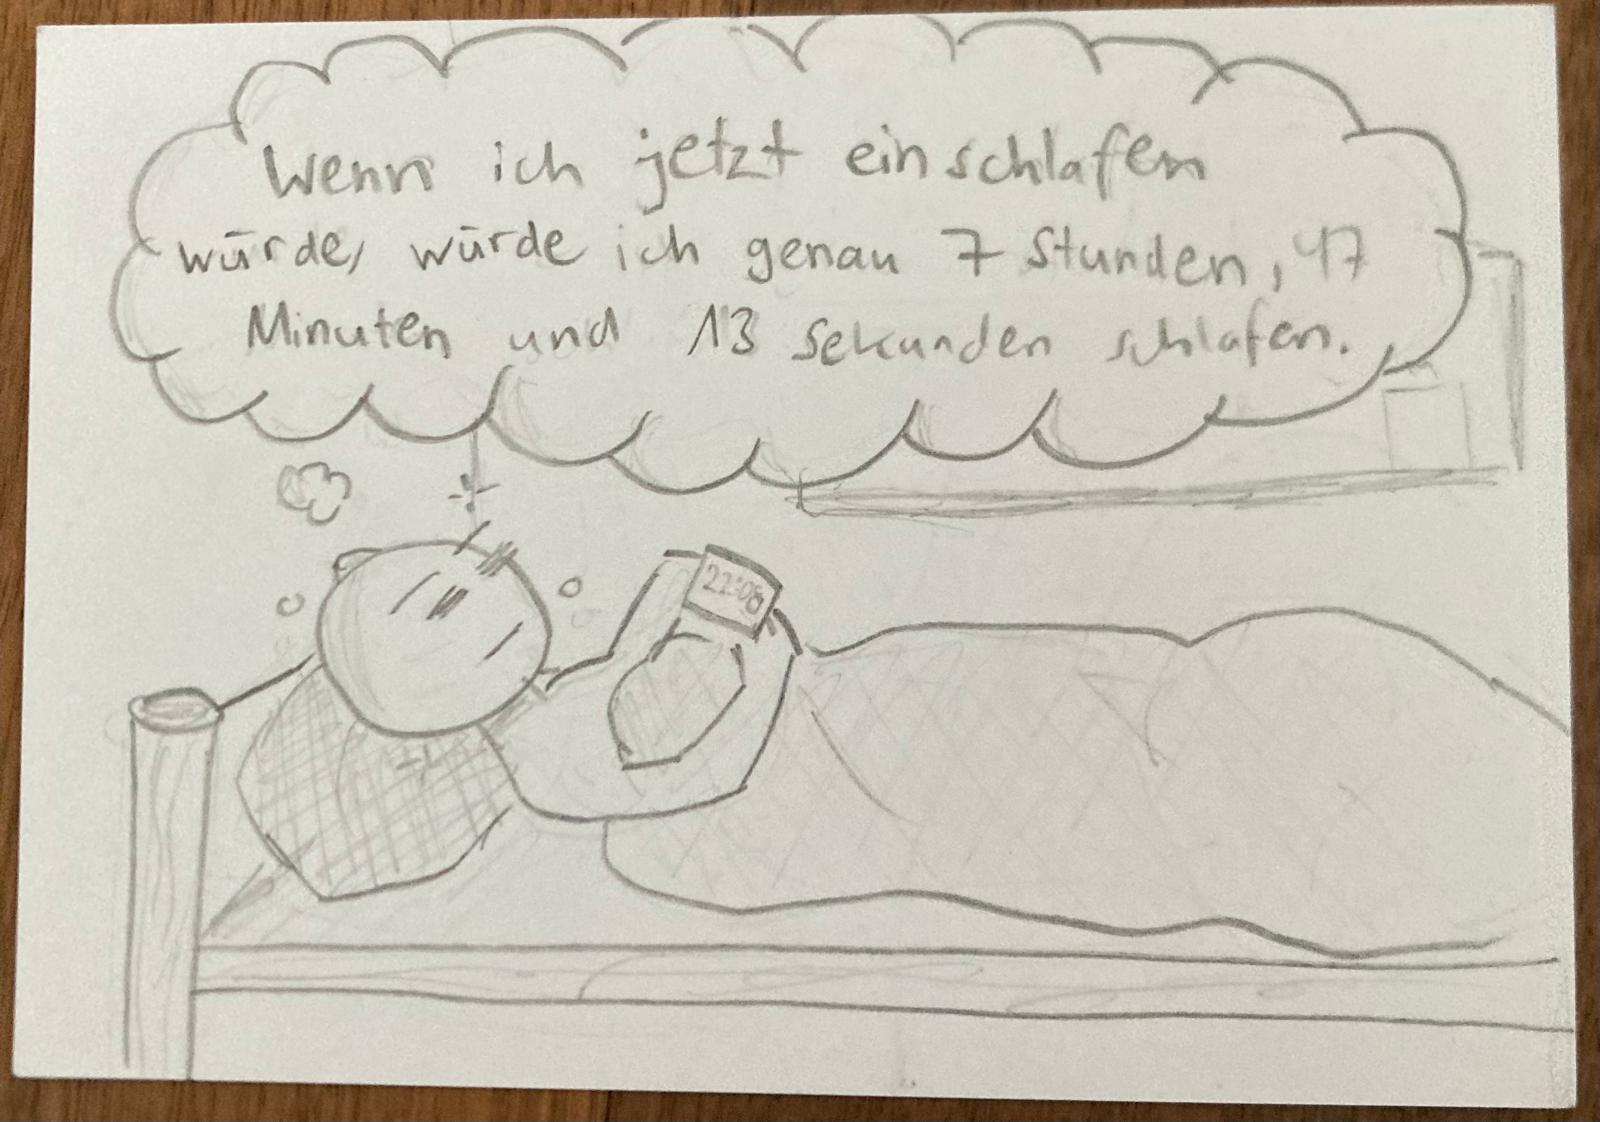 Wenn ich jetzt einschlafen
würde, würde ich genau 7 Stunden, 47
Minuten und 13 Sekunden schlafen.
22:08